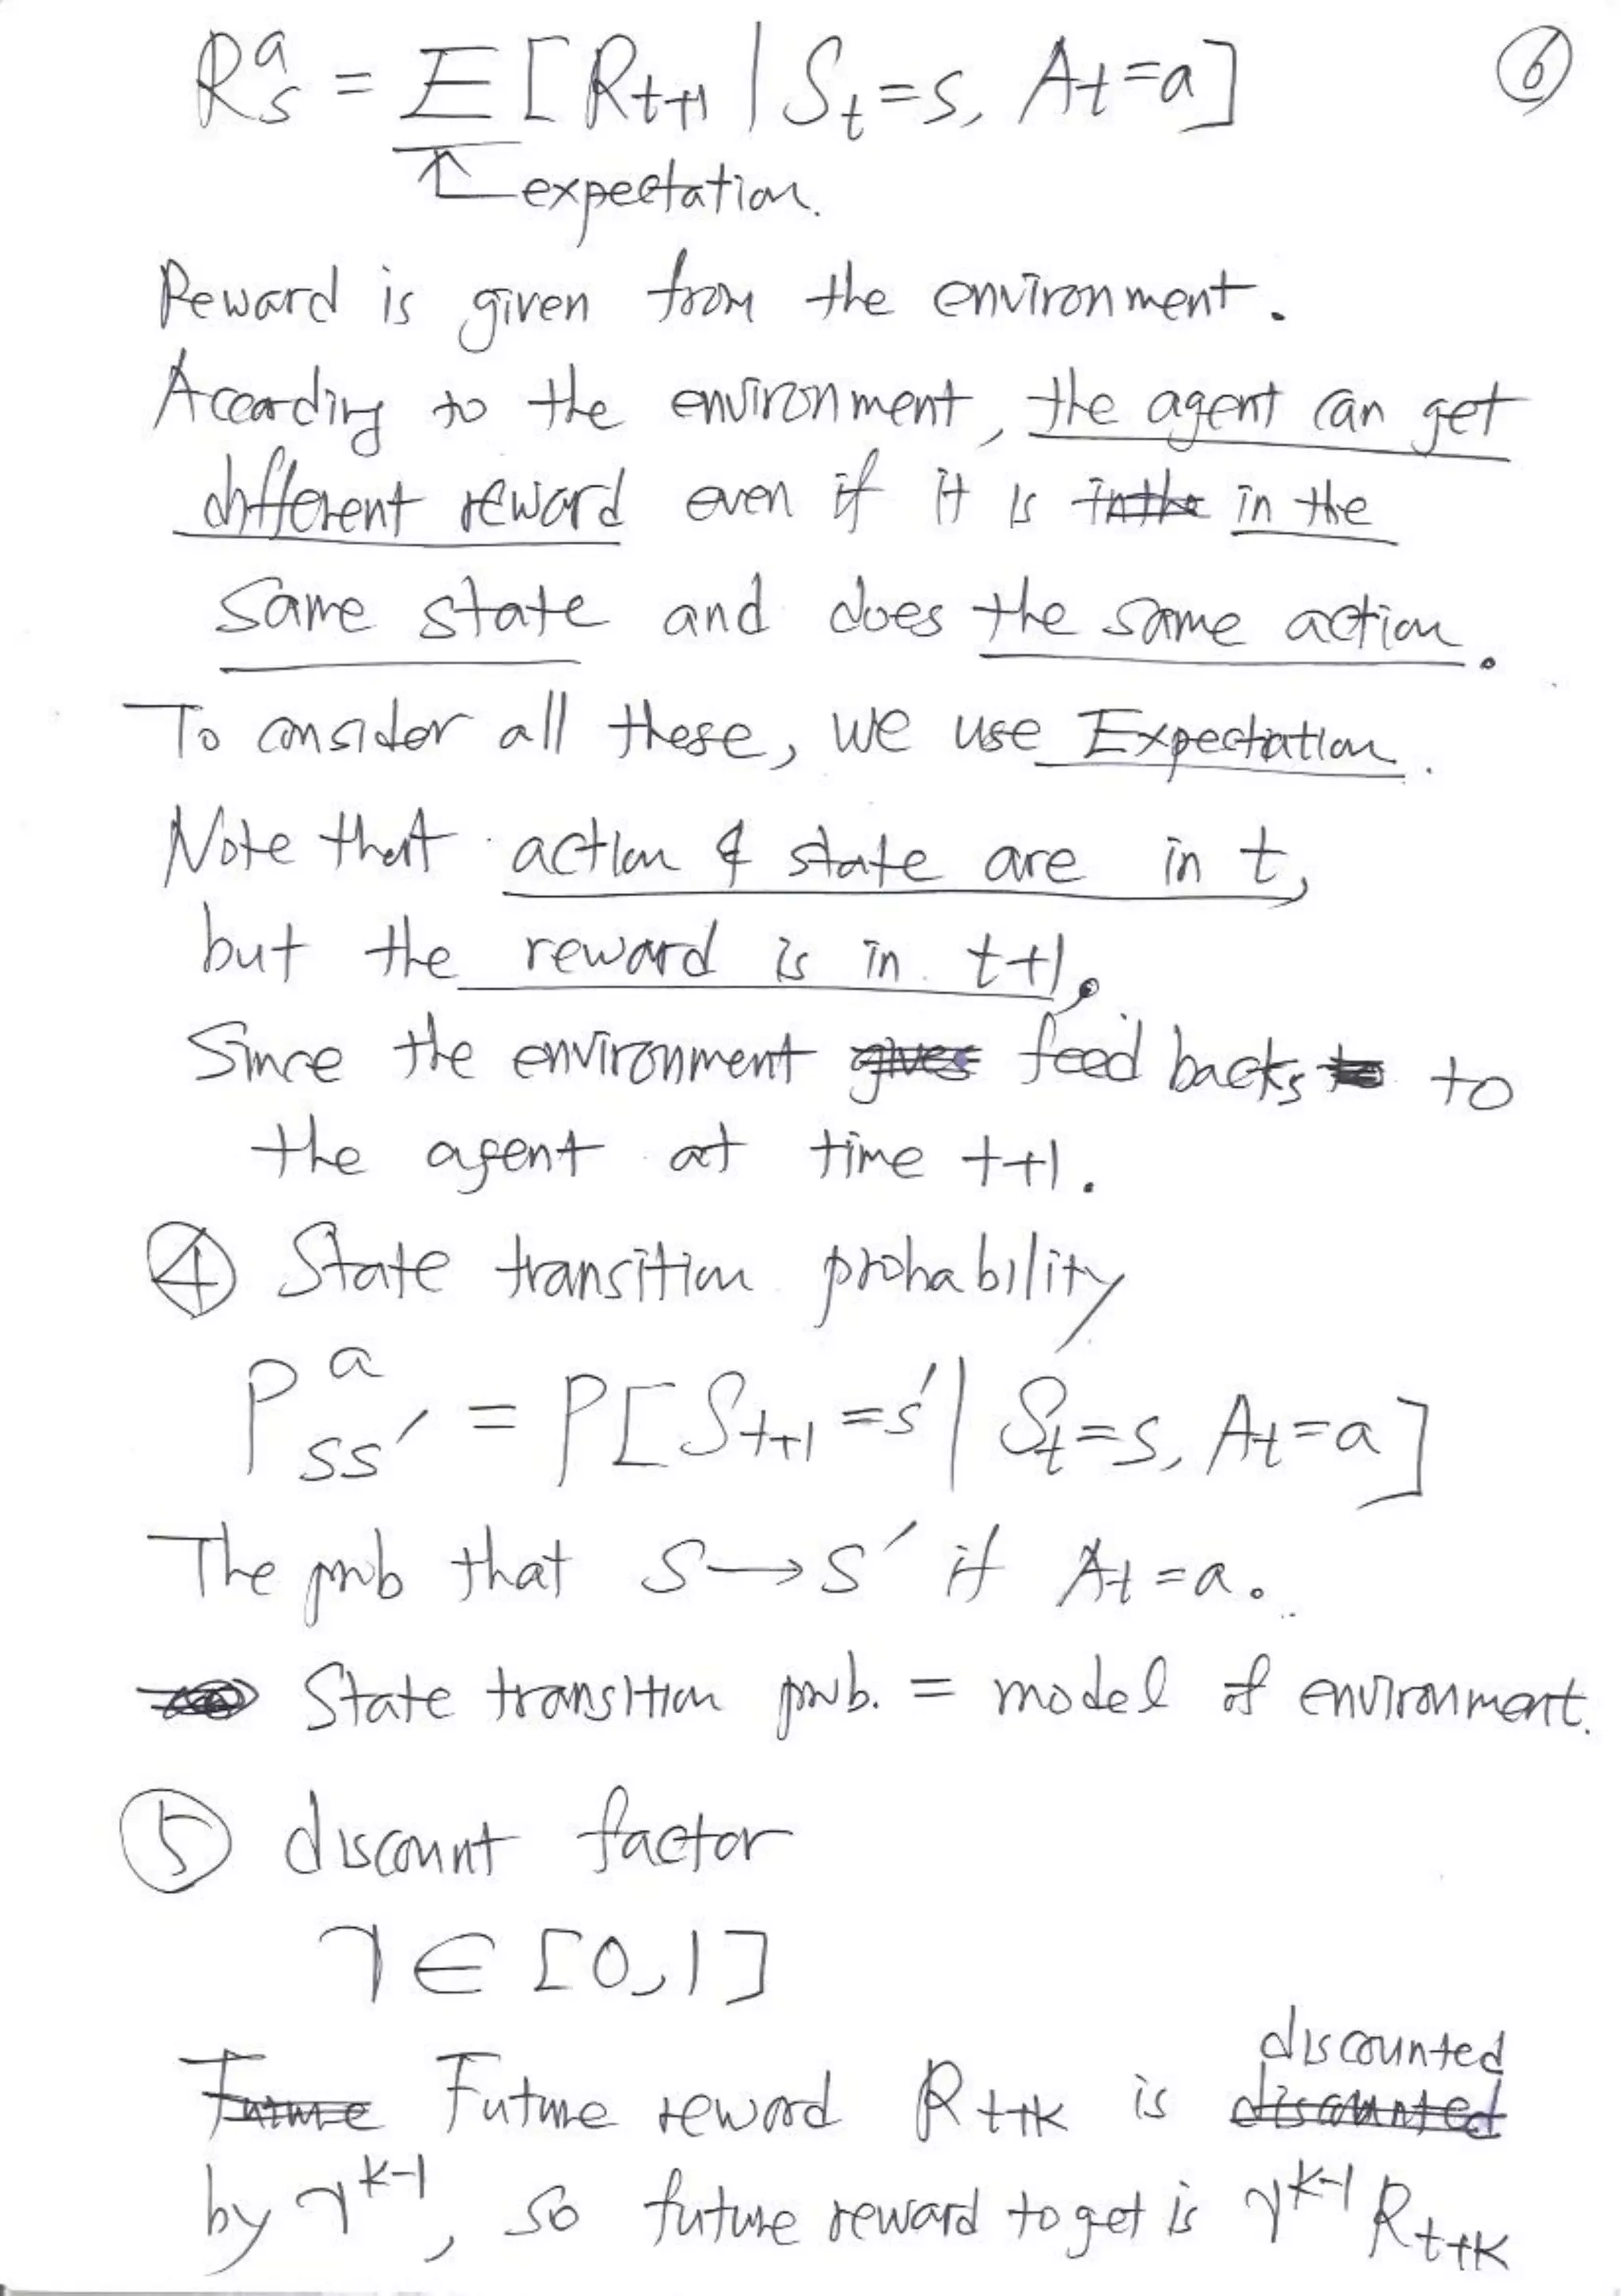 R^a_s = E [ R_{t+1} | S_t = s, A_t = a ] ⑥
expectation.
Reward is given from the environment.
According to the environment, the agent can get
different reward even if it is ~~in the~~ in the
same state and does the same action.
To consider all these, we use Expectation.
Note that action & state are in t,
but the reward is in t+1.
Since the environment ~~gives~~ feed backs ~~to~~ to
the agent at time t+1.
④ State transition probability
P^a_{ss'} = P[ S_{t+1} = s' | S_t = s, A_t = a ]
The prob that s → s' if A_t = a.
State transition prob. = model of environment.
⑤ discount factor
γ ∈ [0,1]
discounted
~~Future~~ Future reward R_{t+k} is ~~discounted~~
by γ^{k-1}, so future reward to get is γ^{k-1} R_{t+k}